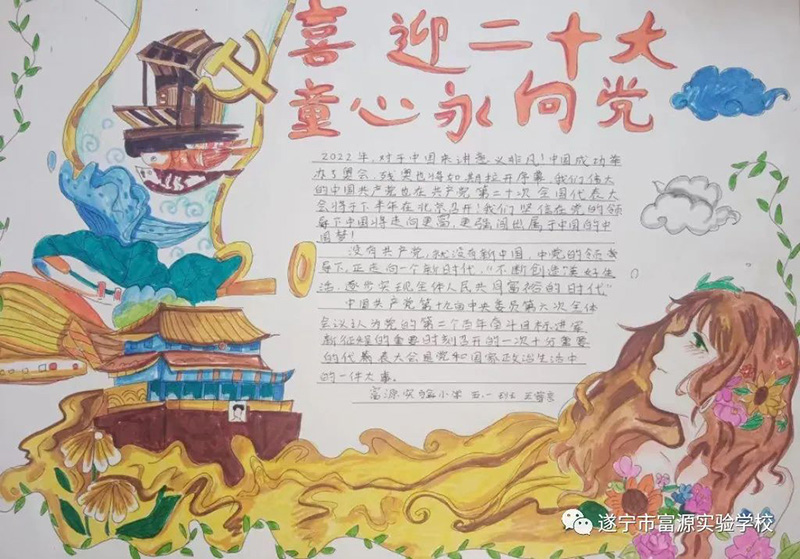 喜迎二十大
童心永向党
2022年,对于中国来讲意义非凡!中国成功举
办了奥会,残奥也将如期拉开序幕,我们伟大
的中国共产党也在共产党第二十次全国代表大
会将于下半年在北京召开!我们坚信在党的领
导下中国将走向更高,更强阔也属于中国的中
国梦!
没有共产党,就没有新中国,中党的领
导下,正走向一个新时代,“不断创造美好生
活,逐步实现全体人民共同富裕的时代”
中国共产党第十九届中央委员第六次全体
会议认为党的第二个百年奋斗目标进军
新征程的重要时刻召开的一次十分重要
的代表大会是党和国家政治生活中
的一件大事。
富源实验小学 五·一班
遂宁市富源实验学校